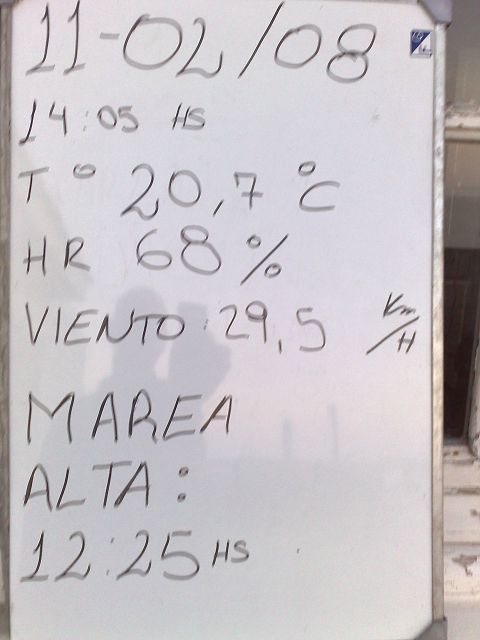 11-02/08
14:05 HS
T° 20,7 °C
HR 68 %
VIENTO: 29,5 Km/H
MAREA
ALTA:
12:25 HS